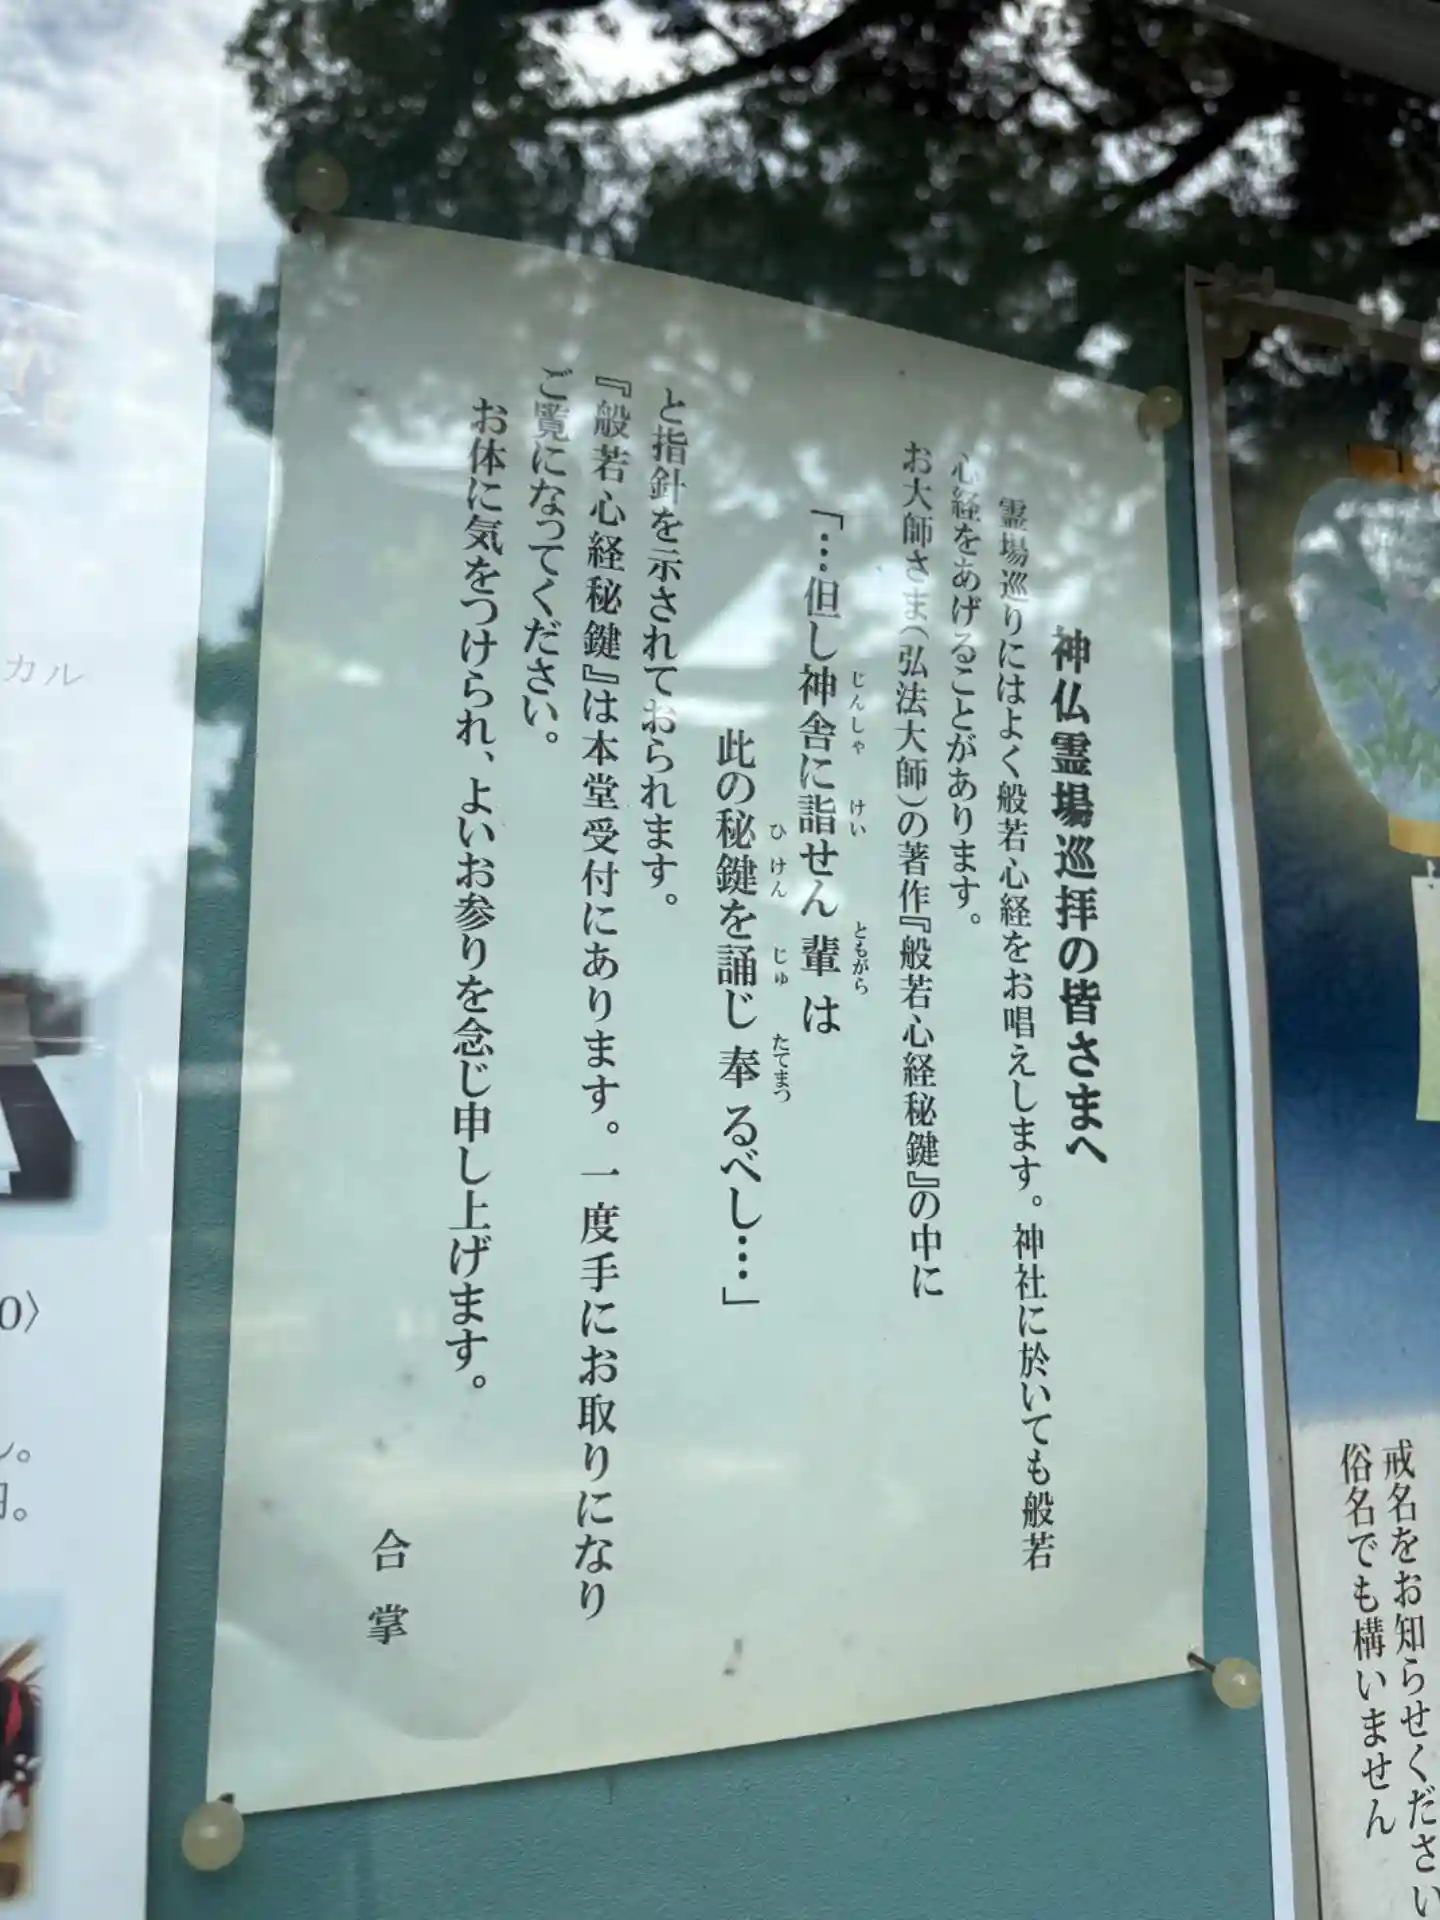 神仏霊場巡拝の皆さまへ
霊場巡りにはよく般若心経をお唱えします。神社に於いても般若
心経をあげることがあります。
お大師さま（弘法大師）の著作『般若心経秘鍵』の中に
「…但し神舎に詣せん輩は
じんしゃ けい ともがら
此の秘鍵を誦じ奉るべし…」
ひけん じゅ たてまつ
と指針を示されておられます。
『般若心経秘鍵』は本堂受付にあります。一度手にお取りになり
ご覧になってください。
お体に気をつけられ、よいお参りを念じ申し上げます。
合掌
戒名をお知らせください
俗名でも構いません
カル
0〉